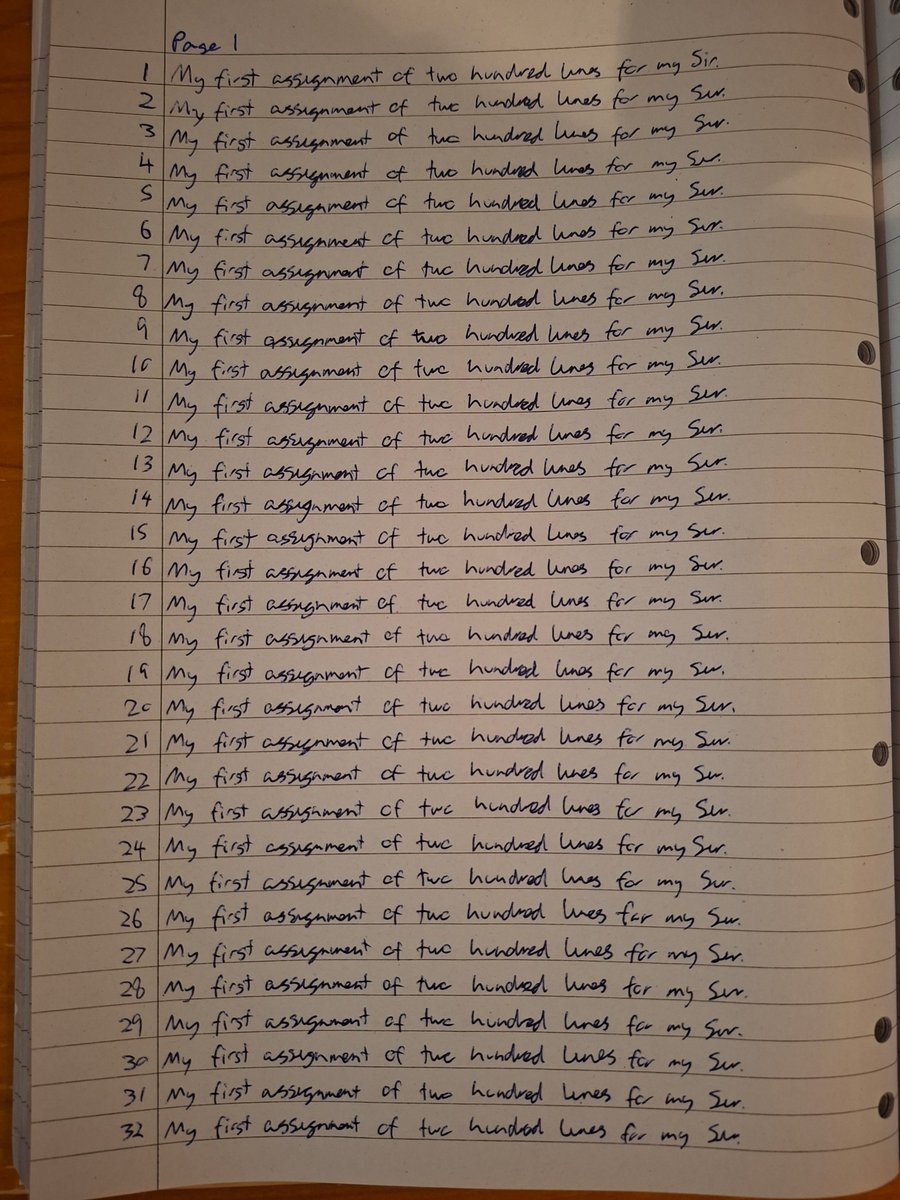 Page 1
1 My first assignment of two hundred lines for my Sir.
2 My first assignment of two hundred lines for my Sir.
3 My first assignment of two hundred lines for my Sir.
4 My first assignment of two hundred lines for my Sir.
5 My first assignment of two hundred lines for my Sir.
6 My first assignment of two hundred lines for my Sir.
7 My first assignment of two hundred lines for my Sir.
8 My first assignment of two hundred lines for my Sir.
9 My first assignment of two hundred lines for my Sir.
10 My first assignment of two hundred lines for my Sir.
11 My first assignment of two hundred lines for my Sir.
12 My first assignment of two hundred lines for my Sir.
13 My first assignment of two hundred lines for my Sir.
14 My first assignment of two hundred lines for my Sir.
15 My first assignment of two hundred lines for my Sir.
16 My first assignment of two hundred lines for my Sir.
17 My first assignment of two hundred lines for my Sir.
18 My first assignment of two hundred lines for my Sir.
19 My first assignment of two hundred lines for my Sir.
20 My first assignment of two hundred lines for my Sir.
21 My first assignment of two hundred lines for my Sir.
22 My first assignment of two hundred lines for my Sir.
23 My first assignment of two hundred lines for my Sir.
24 My first assignment of two hundred lines for my Sir.
25 My first assignment of two hundred lines for my Sir.
26 My first assignment of two hundred lines for my Sir.
27 My first assignment of two hundred lines for my Sir.
28 My first assignment of two hundred lines for my Sir.
29 My first assignment of two hundred lines for my Sir.
30 My first assignment of two hundred lines for my Sir.
31 My first assignment of two hundred lines for my Sir.
32 My first assignment of two hundred lines for my Sir.